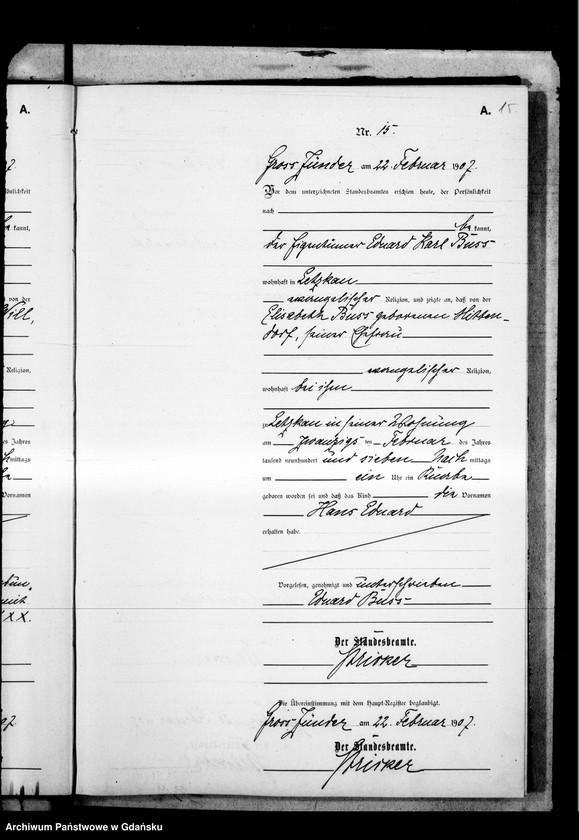 A.
A. 15
Nr. 15.
Gross Zünder am 22. Februar 1907.
Vor dem unterzeichneten Standesbeamten erschien heute, der Persönlichkeit
nach
be kannt,
der Eigentümer Eduard Karl Buss
wohnhaft in Letzkau
evangelischer Religion, und zeigte an, daß von der
Elisabeth Buss geborenen Mitten-
dorf, seiner Ehefrau
evangelischer Religion,
wohnhaft bei ihm
zu Letzkau in seiner Wohnung
am zwanzigs ten Februar des Jahres
tausend neunhundert und sieben Nach mittags
um ein Uhr ein Knabe
geboren worden sei und daß das Kind die Vornamen
Hans Eduard
erhalten habe.
Vorgelesen, genehmigt und unterschrieben
Eduard Buss
Der Standesbeamte.
Die Übereinstimmung mit dem Haupt-Register beglaubigt.
Gross Zünder am 22. Februar 1907.
Der Standesbeamte.
Archiwum Państwowe w Gdańsku